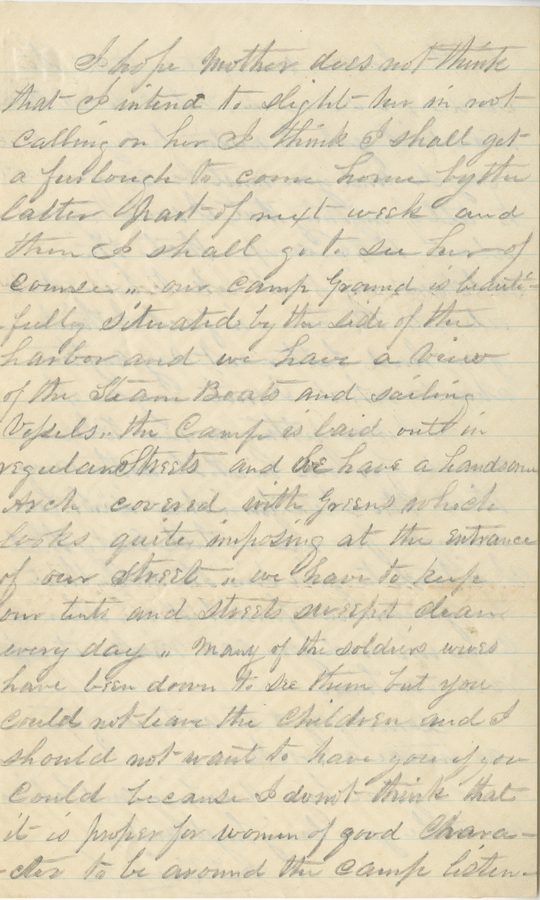 I hope Mother does not think
that I intend to slight her in not
calling on her I think I shall get
a furlough to come home by the
latter Part of next week and
then I shall go to see her of
course „ our camp Ground is beauti-
fully situated by the side of the
harbor and we have a view
of the Steam Boats and sailing
Vessels „ the Camp is laid out in
regular Streets and we have a handsome
Arch covered with Greens which
looks quite imposing at the entrance
of our Street „ we have to keep
our tents and streets swept clean
every day „ Many of the soldiers wives
have been down to see them but you
could not leave the Children and I
should not want to have you if you
could because I do not think that
it is proper for women of good Chara-
-cter to be around the camp listen-